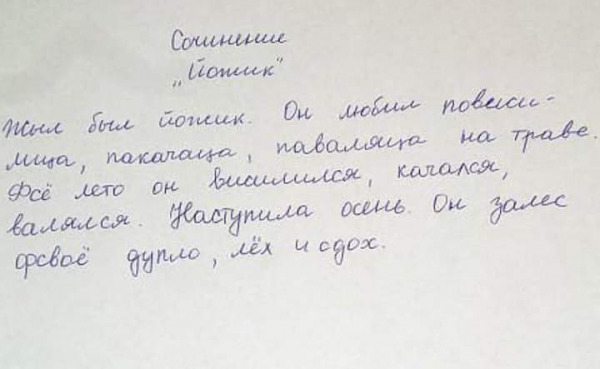 Сочинение
„Йожик"
Жыл был йожик. Он любил повесси-
лица, пакачаца, паваляца на траве.
Фсё лето он висилился, качался,
валялся. Наступила осень. Он залес
фсваё дупло, лёх и сдох.